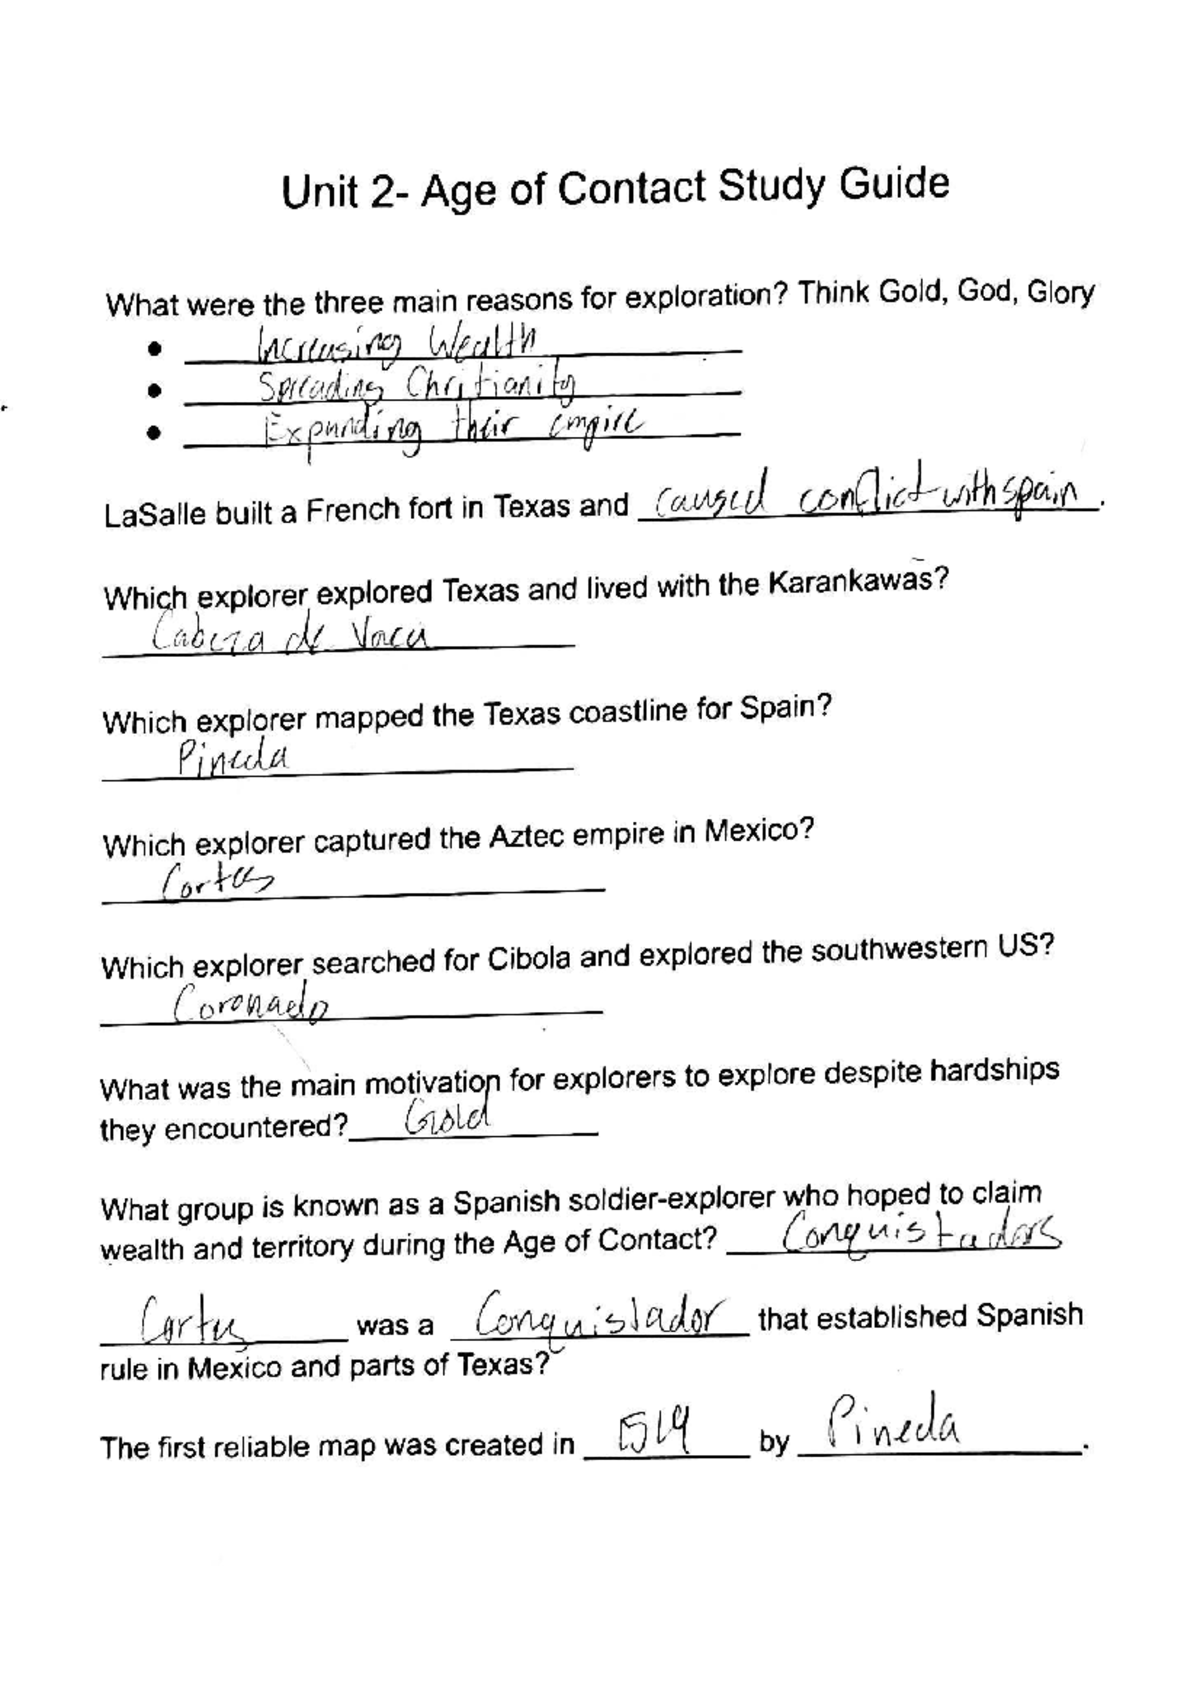 Unit 2- Age of Contact Study Guide
What were the three main reasons for exploration? Think Gold, God, Glory
• Increasing Wealth
• Spreading Christianity
• Expanding their empire
LaSalle built a French fort in Texas and caused conflict with spain.
Which explorer explored Texas and lived with the Karankawas?
Cabeza de Vaca
Which explorer mapped the Texas coastline for Spain?
Pineda
Which explorer captured the Aztec empire in Mexico?
Cortes
Which explorer searched for Cibola and explored the southwestern US?
Coronado
What was the main motivation for explorers to explore despite hardships
they encountered? Gold
What group is known as a Spanish soldier-explorer who hoped to claim
wealth and territory during the Age of Contact? Conquistadors
Cortes was a Conquistador that established Spanish
rule in Mexico and parts of Texas?
The first reliable map was created in 1519 by Pineda.